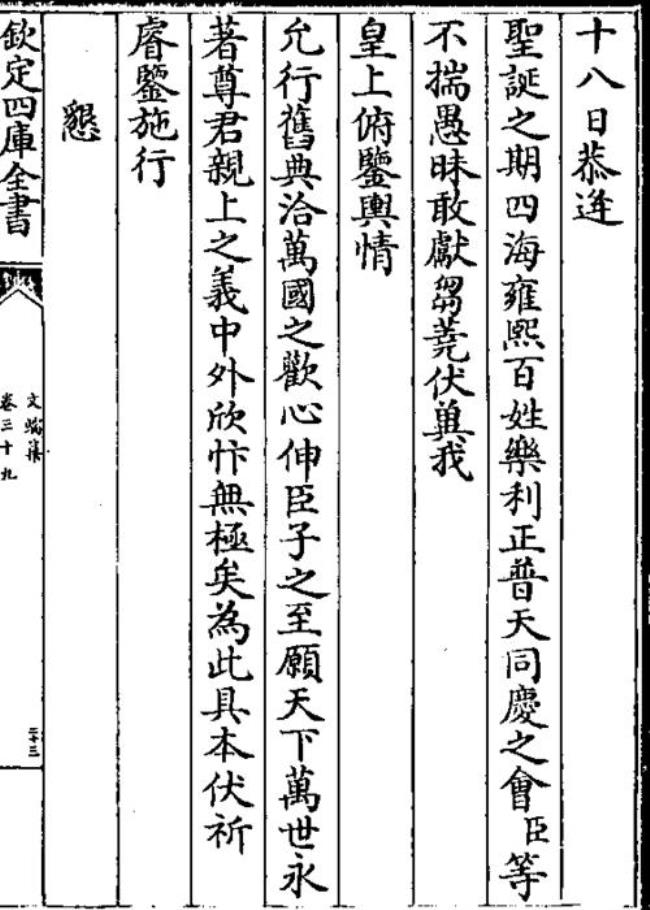 十八日恭逢
聖誕之期四海雍熙百姓樂利正普天同慶之會臣等
不揣愚昧敢獻芻蕘伏冀我
皇上俯鑒輿情
允行舊典洽萬國之歡心伸臣子之至願天下萬世永
著尊君親上之義中外欣忭無極矣為此具本伏祈
睿鑒施行
懇
欽定四庫全書
文端集
卷三十九
二十三